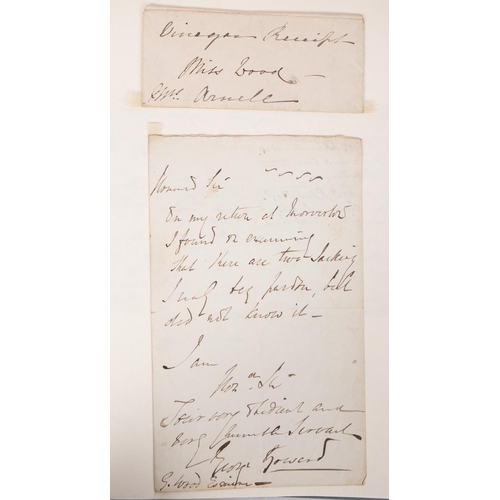 Vinegar Receipt
Miss Wood -
& Mrs. Arnell
Honourd Sir
On my return at
I found on examining
that there are two
I beg pardon, but
did not know it -
I am
Honᵈ. Sir
Your very Obedient and
very Humble Servant
George Howard
G. Wood Esquire -